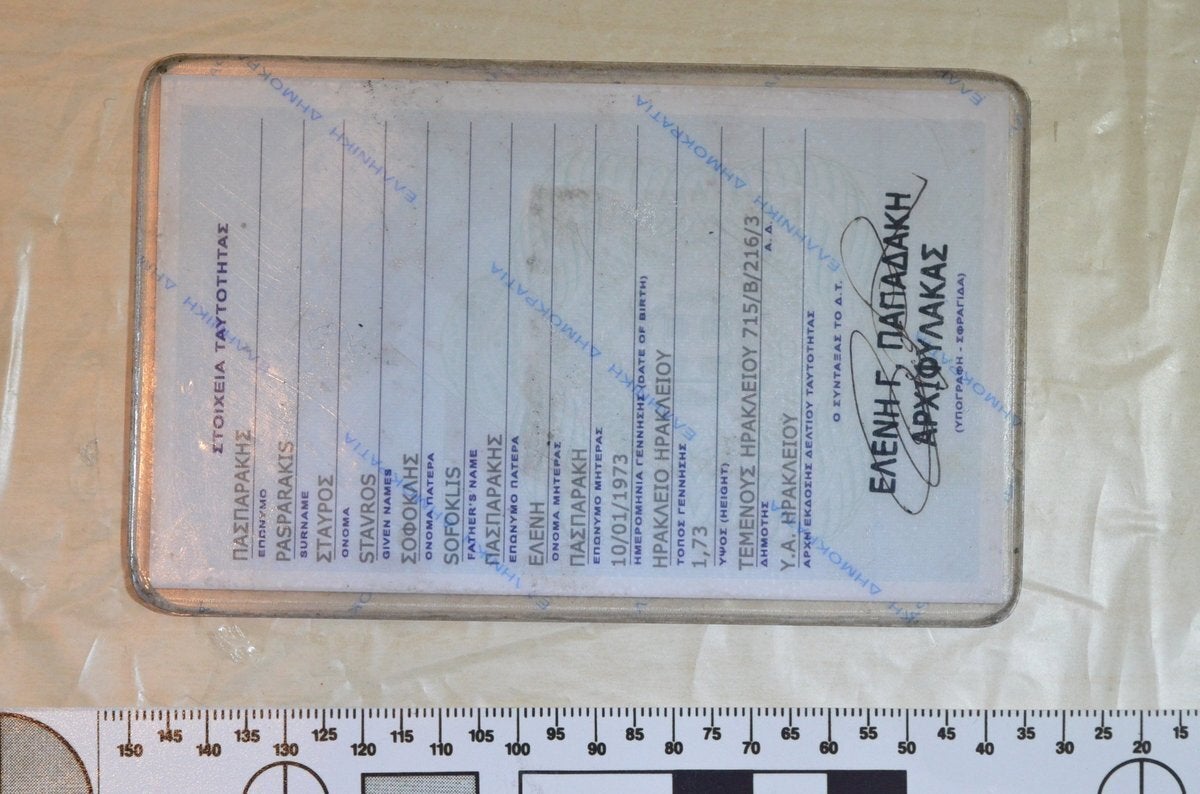 ΣΤΟΙΧΕΙΑ ΤΑΥΤΟΤΗΤΑΣ
ΠΑΣΠΑΡΑΚΗΣ
ΕΠΩΝΥΜΟ
PASPARAKIS
SURNAME
ΣΤΑΥΡΟΣ
ΟΝΟΜΑ
STAVROS
GIVEN NAMES
ΣΟΦΟΚΛΗΣ
ΟΝΟΜΑ ΠΑΤΕΡΑ
SOFOKLIS
FATHER'S NAME
ΠΑΣΠΑΡΑΚΗΣ
ΕΠΩΝΥΜΟ ΠΑΤΕΡΑ
ΕΛΕΝΗ
ΟΝΟΜΑ ΜΗΤΕΡΑΣ
ΠΑΣΠΑΡΑΚΗ
ΕΠΩΝΥΜΟ ΜΗΤΕΡΑΣ
10/01/1973
ΗΜΕΡΟΜΗΝΙΑ ΓΕΝΝΗΣΗΣ (DATE OF BIRTH)
ΗΡΑΚΛΕΙΟ ΗΡΑΚΛΕΙΟΥ
ΤΟΠΟΣ ΓΕΝΝΗΣΗΣ
1,73
ΥΨΟΣ (HEIGHT)
ΤΕΜΕΝΟΥΣ ΗΡΑΚΛΕΙΟΥ 715/Β/216/3
ΔΗΜΟΤΗΣ Α.Δ.
Υ.Α. ΗΡΑΚΛΕΙΟΥ
ΑΡΧΗ ΕΚΔΟΣΗΣ ΔΕΛΤΙΟΥ ΤΑΥΤΟΤΗΤΑΣ
Ο ΣΥΝΤΑΞΑΣ ΤΟ Δ.Τ.
ΕΛΕΝΗ Γ. ΠΑΠΑΔΑΚΗ
ΑΡΧΙΦΥΛΑΚΑΣ
(ΥΠΟΓΡΑΦΗ - ΣΦΡΑΓΙΔΑ)
ΕΛΛΗΝΙΚΗ ΔΗΜΟΚΡΑΤΙΑ
150 145 140 135 130 125 120 115 110 105 100 95 90 85 80 75 70 65 60 55 50 45 40 35 30 25 20 15